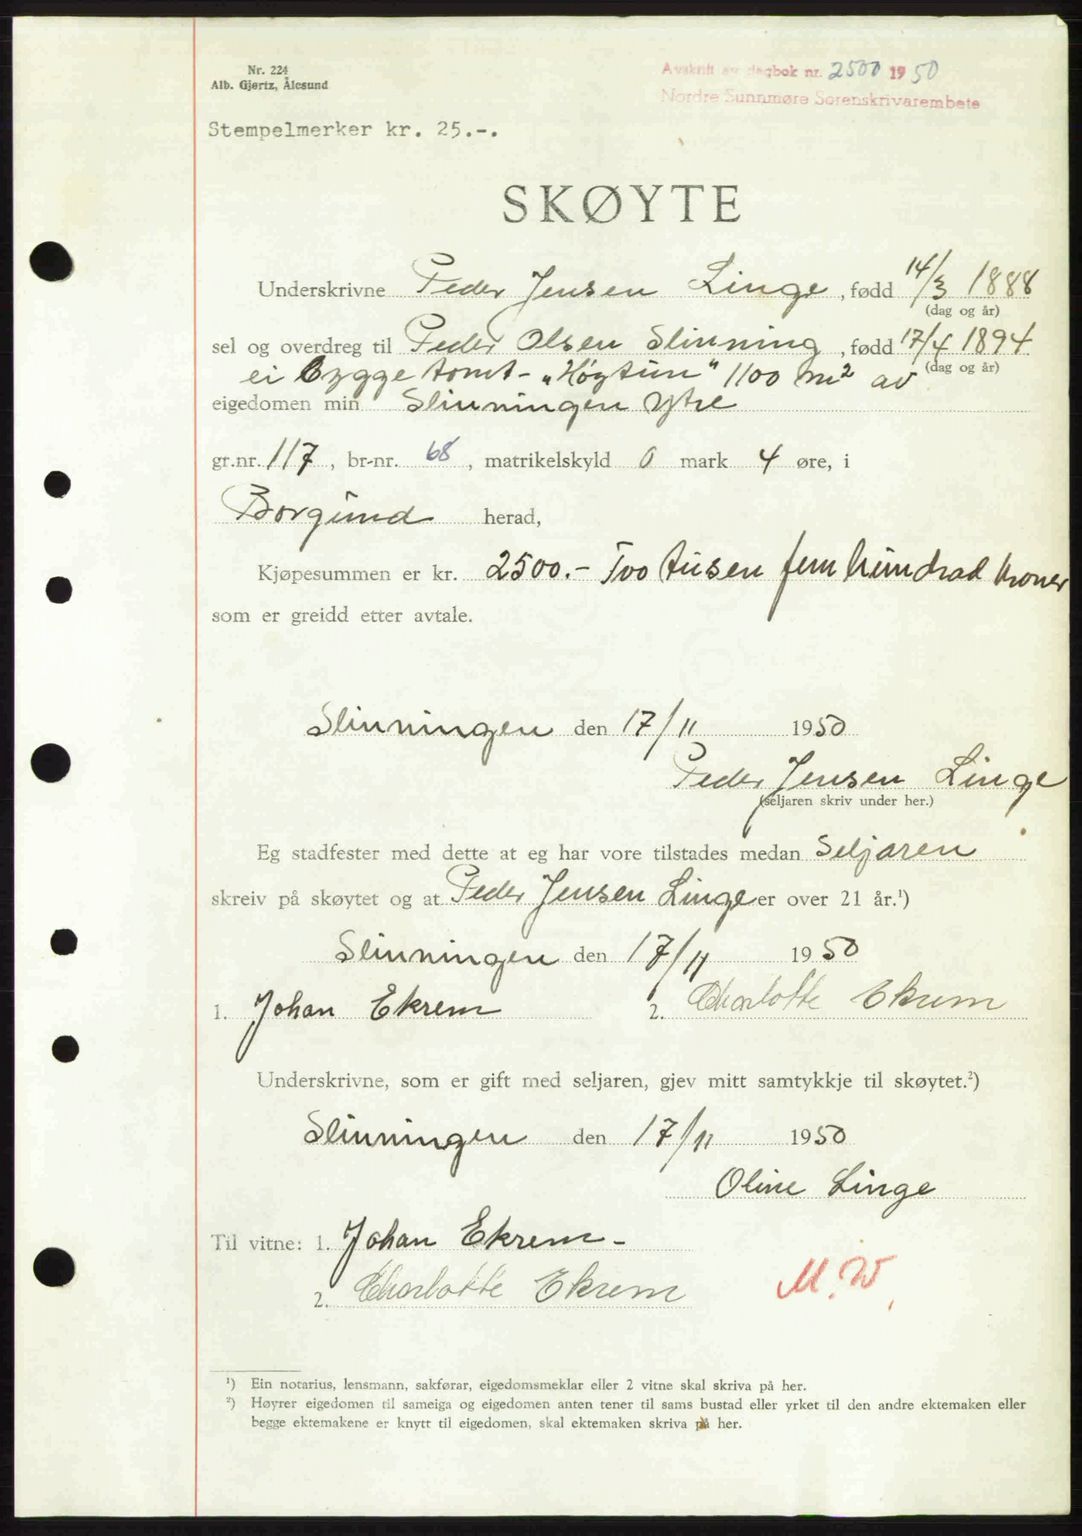 Nr. 224
Alb. Gjertz, Ålesund
Avskrift av dagbok nr. 2500 1950
Nordre Sunnmøre Sorenskrivarembete
Stempelmerker kr. 25.-.
SKØYTE
Underskrivne Peder Jensen Linge, fødd 14/3 1888
(dag og år)
sel og overdreg til Peder Olsen Slinning, fødd 17/4 1894
(dag og år)
ei byggetomt - „Høgtun" 1100 m² av
eigedomen min Slinningen Ytre
gr.nr. 117, br-nr. 68, matrikelskyld 0 mark 4 øre, i
Borgund herad,
Kjøpesummen er kr. 2500.- Too tusen fem hundrad kroner
som er greidd etter avtale.
Slinningen den 17/11 1950
Peder Jensen Linge
(seljaren skriv under her.)
Eg stadfester med dette at eg har vore tilstades medan Seljaren
skreiv på skøytet og at Peder Jensen Linge er over 21 år.¹)
Slinningen den 17/11 1950
1. Johan Ekrem 2. Charlotte Ekrem
Underskrivne, som er gift med seljaren, gjev mitt samtykkje til skøytet.²)
Slinningen den 17/11 1950
Oline Linge
Til vitne: 1. Johan Ekrem -
2. Charlotte Ekrem
M.W.
¹) Ein notarius, lensmann, sakførar, eigedomsmeklar eller 2 vitne skal skriva på her.
²) Høyrer eigedomen til sameiga og eigedomen anten tener til sams bustad eller yrket til den andre ektemaken eller
begge ektemakene er knytt til eigedomen, skal ektemaken skriva på her.